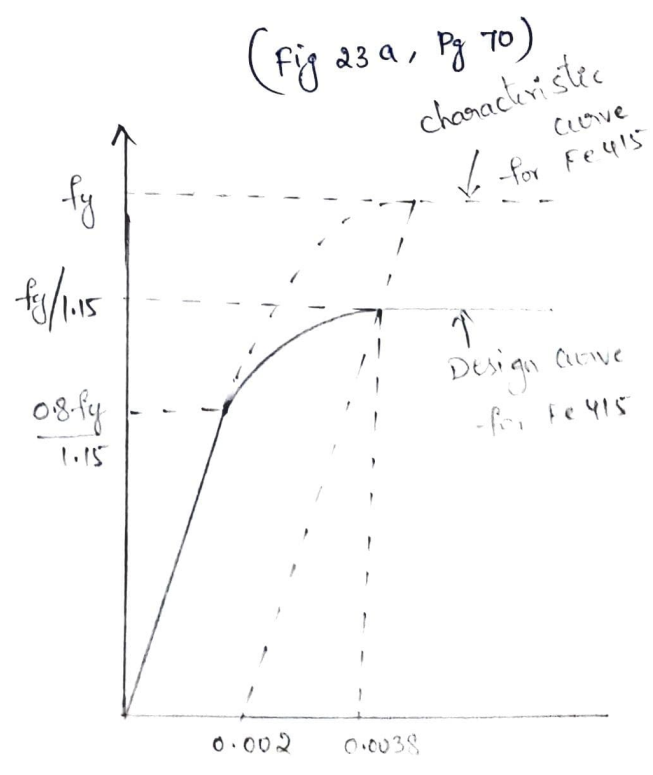 (Fig 23 a, Pg 70)
characteristic
curve
for Fe 415
fy
fy/1.15
Design curve
for Fe 415
0.8 fy
1.15
0.002
0.0038